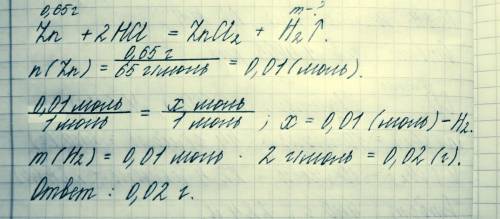 0,65г m-?
Zn + 2HCl = ZnCl₂ + H₂↑.
n(Zn) = 0,65 г / 65 г/моль = 0,01 (моль).
0,01 моль / 1 моль = x моль / 1 моль ; x = 0,01 (моль) - H₂.
m(H₂) = 0,01 моль · 2 г/моль = 0,02 (г).
Ответ : 0,02 г.